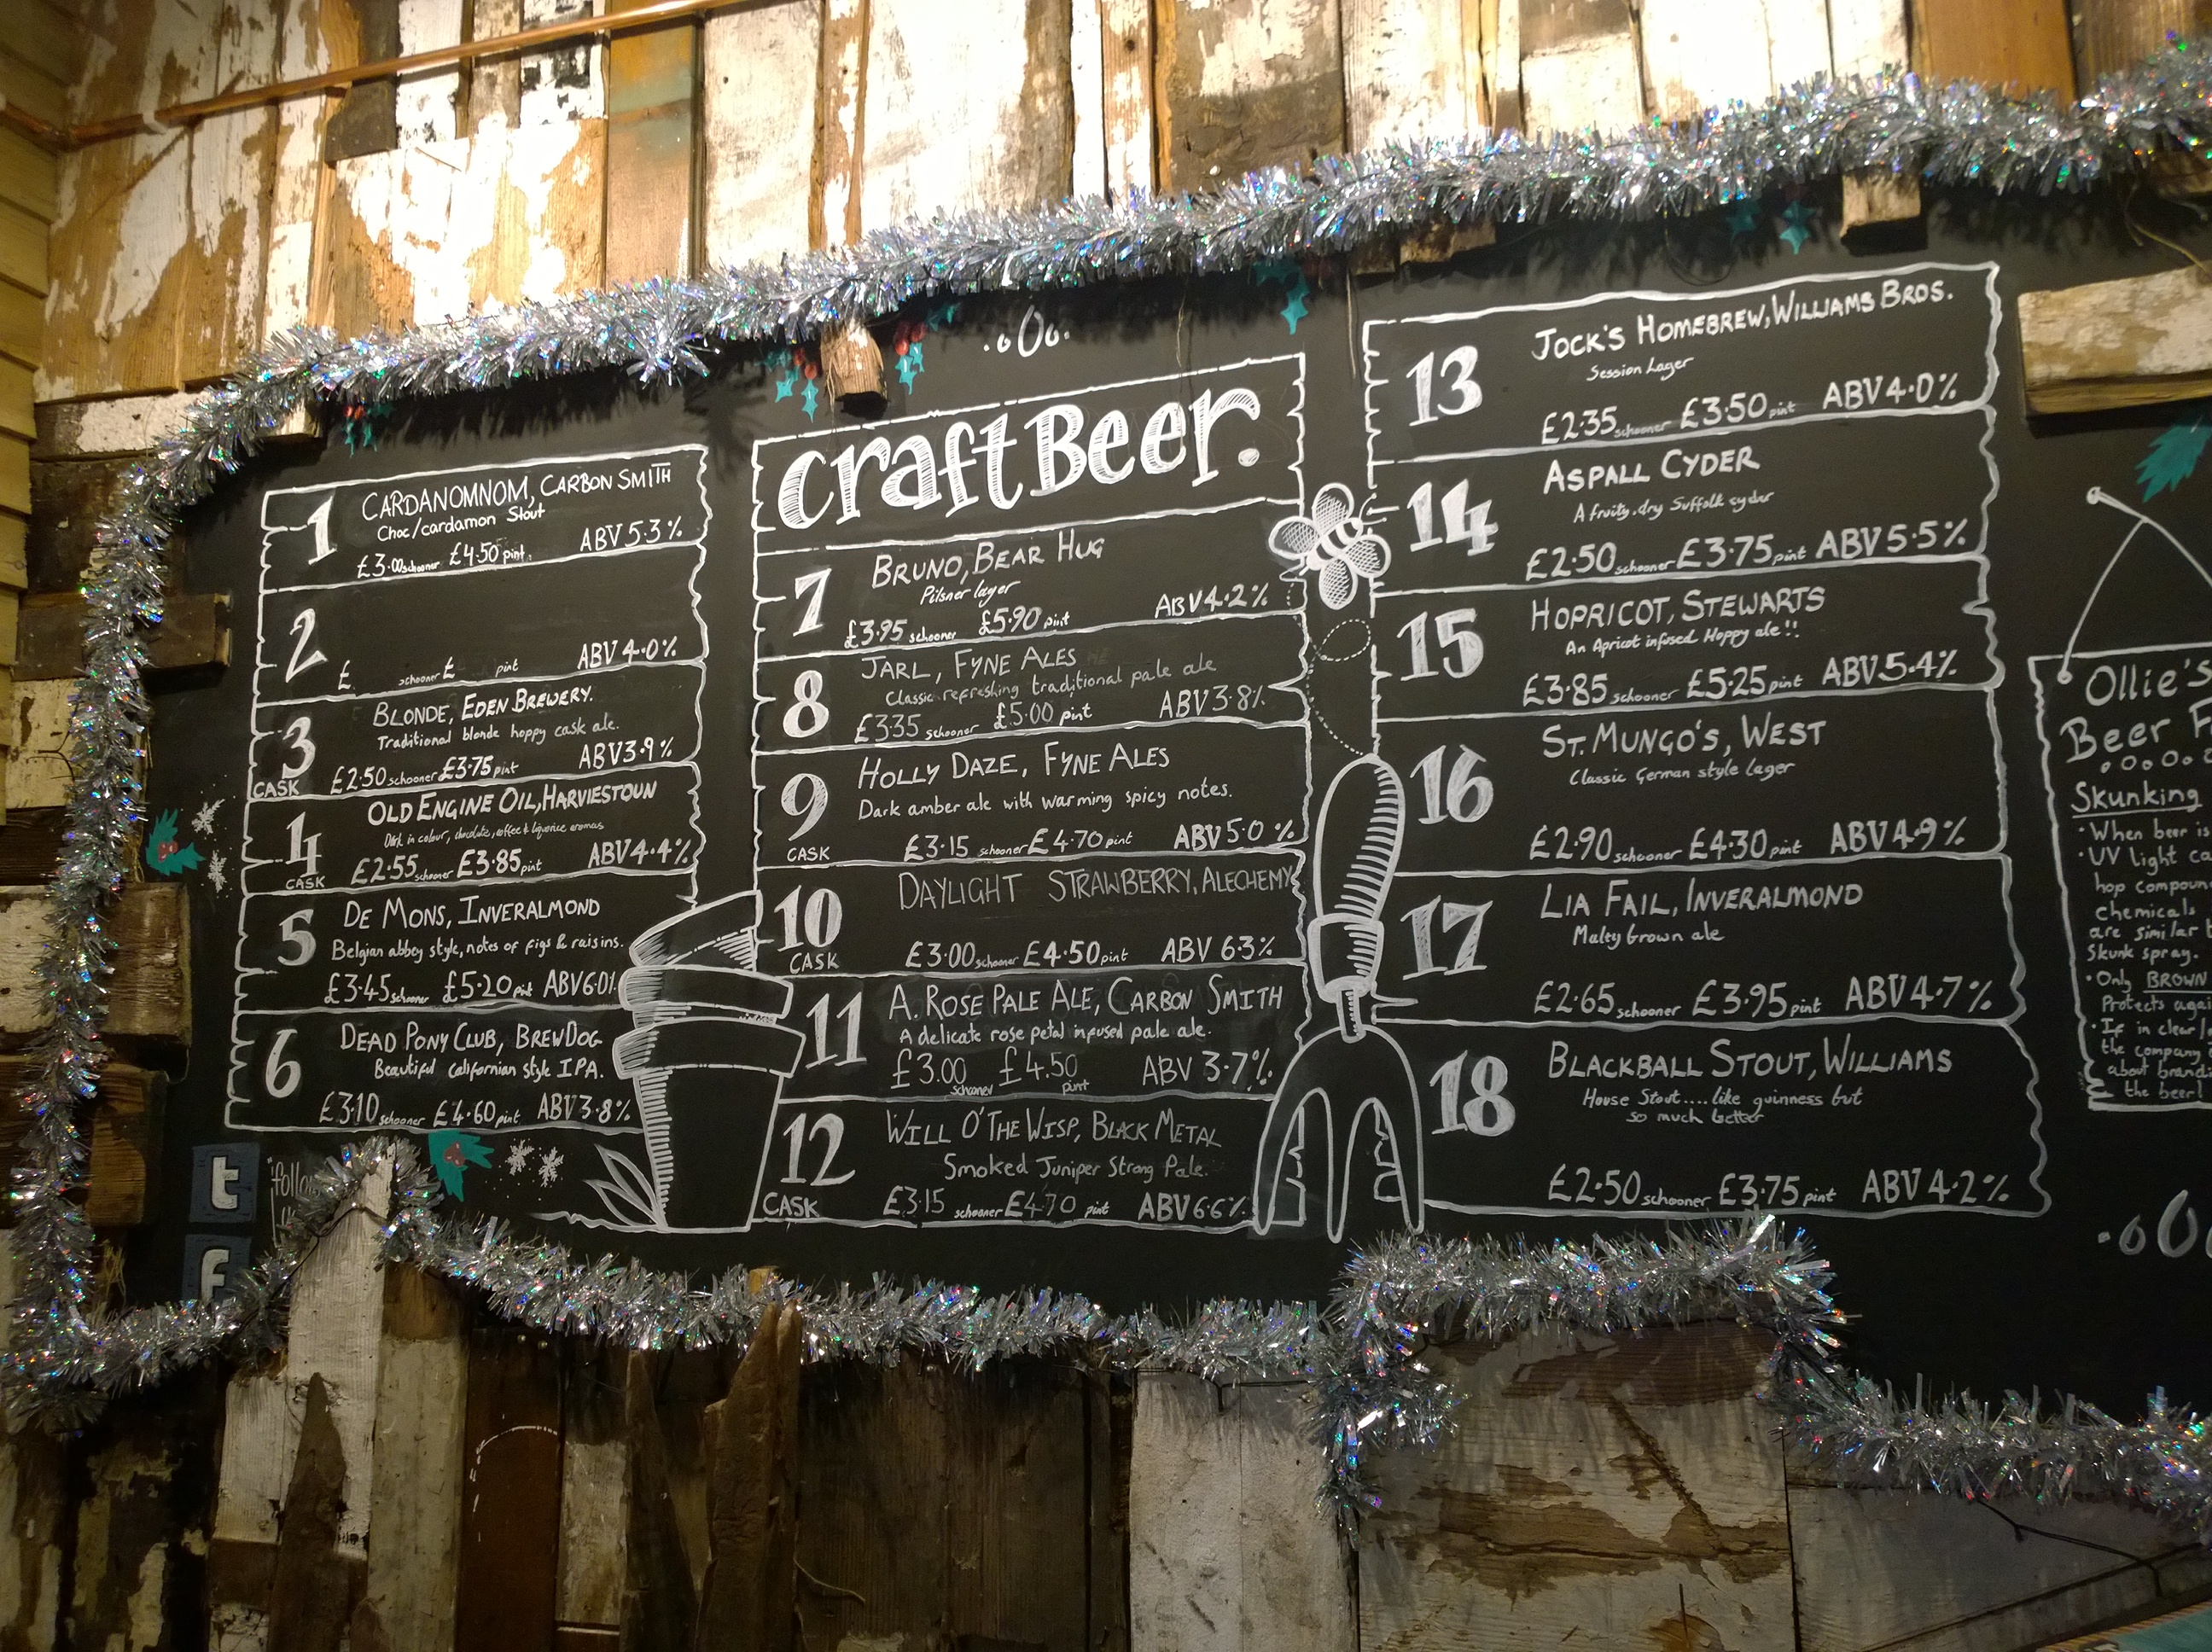 craftBeer.
1
CARDANOMNOM, CARBON SMITH
Choc/cardamon Stout
£3.00 schooner £4.50 pint. ABV 5.3%
2
£. schooner £ pint ABV 4.0%
3
CASK
BLONDE, EDEN BREWERY.
Traditional blonde hoppy cask ale.
£2.50 schooner £3.75 pint ABV 3.9%
4
CASK
OLD ENGINE OIL, HARVIESTOUN
Dark in colour, chocolate, coffee & liquorice aromas
£2.55 schooner £3.85 pint ABV 4.4%
5
DE MONS, INVERALMOND
Belgian abbey style, notes of figs & raisins.
£3.45 schooner £5.20 pint ABV 6.0%
6
DEAD PONY CLUB, BREWDOG
Beautiful californian style IPA.
£3.10 schooner £4.60 pint ABV 3.8%
7
BRUNO, BEAR HUG
Pilsner lager
£3.95 schooner £5.90 pint ABV 4.2%
8
JARL, FYNE ALES
Classic refreshing traditional pale ale
£3.35 schooner £5.00 pint ABV 3.8%
9
CASK
HOLLY DAZE, FYNE ALES
Dark amber ale with warming spicy notes.
£3.15 schooner £4.70 pint ABV 5.0%
10
CASK
DAYLIGHT STRAWBERRY, ALECHEMY
£3.00 schooner £4.50 pint ABV 6.3%
11
A. ROSE PALE ALE, CARBON SMITH
A delicate rose petal infused pale ale.
£3.00 schooner £4.50 pint ABV 3.7%
12
CASK
WILL O' THE WISP, BLACK METAL
Smoked Juniper Strong Pale.
£3.15 schooner £4.70 pint ABV 6.6%
13
JOCK'S HOMEBREW, WILLIAMS BROS.
Session Lager
£2.35 schooner £3.50 pint ABV 4.0%
14
ASPALL CYDER
A fruity, dry Suffolk cyder
£2.50 schooner £3.75 pint ABV 5.5%
15
HOPRICOT, STEWARTS
An Apricot infused Hoppy ale!!
£3.85 schooner £5.25 pint ABV 5.4%
16
ST. MUNGO'S, WEST
Classic German style lager
£2.90 schooner £4.30 pint ABV 4.9%
17
LIA FAIL, INVERALMOND
Malty brown ale
£2.65 schooner £3.95 pint ABV 4.7%
18
BLACKBALL STOUT, WILLIAMS
House Stout.... like guinness but
so much better
£2.50 schooner £3.75 pint ABV 4.2%
Ollie's
Beer
Skunking
• When beer is
• UV light
hop
chemicals
are similar
Skunk spray.
• Only BROWN
Protects
• If in clear
the company
about
the beer!
t
f